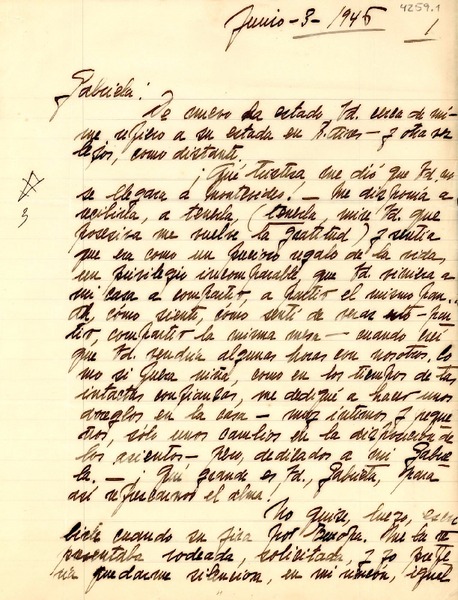 4259.1
Junio - 3 - 1945
1
Gabriela:
De nuevo ha estado Ud. cerca de mí -
me refiero a su estada en B. Aires - y otra vez
lejos, como distante.
¡Qué tristeza me dió que Ud. no
se llegara a Montevideo! - Me disponía a
recibirla, a tenerla, (tenerla, mire Ud. que
posesiva me vuelve la gratitud) y sentía
que era como un precioso regalo de la vida,
un privilegio incomparable que Ud. viniera a
mi casa a compartir, a partir el mismo pan..
Ah, cómo siento, como sentí de veras esto - par-
tir, compartir la misma mesa - cuando creí
que Ud. vendría algunas horas con nosotros. Co
mo si fuera niña, como en los tiempos de las
intactas confianzas, me dediqué a hacer unos
arreglos en la casa - muy íntimos y peque
ños, sólo unos cambios en la disposición de
los asientos - pero, dedicados a mi Gabrie
la. - ¡Qué grande es Ud., Gabriela, para
así refrescarnos el alma!
No quise, luego, escri
birle cuando su jira por Europa. Me la re
presentaba rodeada, solicitada, y yo prefe
ría quedarme silenciosa, en mi rincón, igual
3